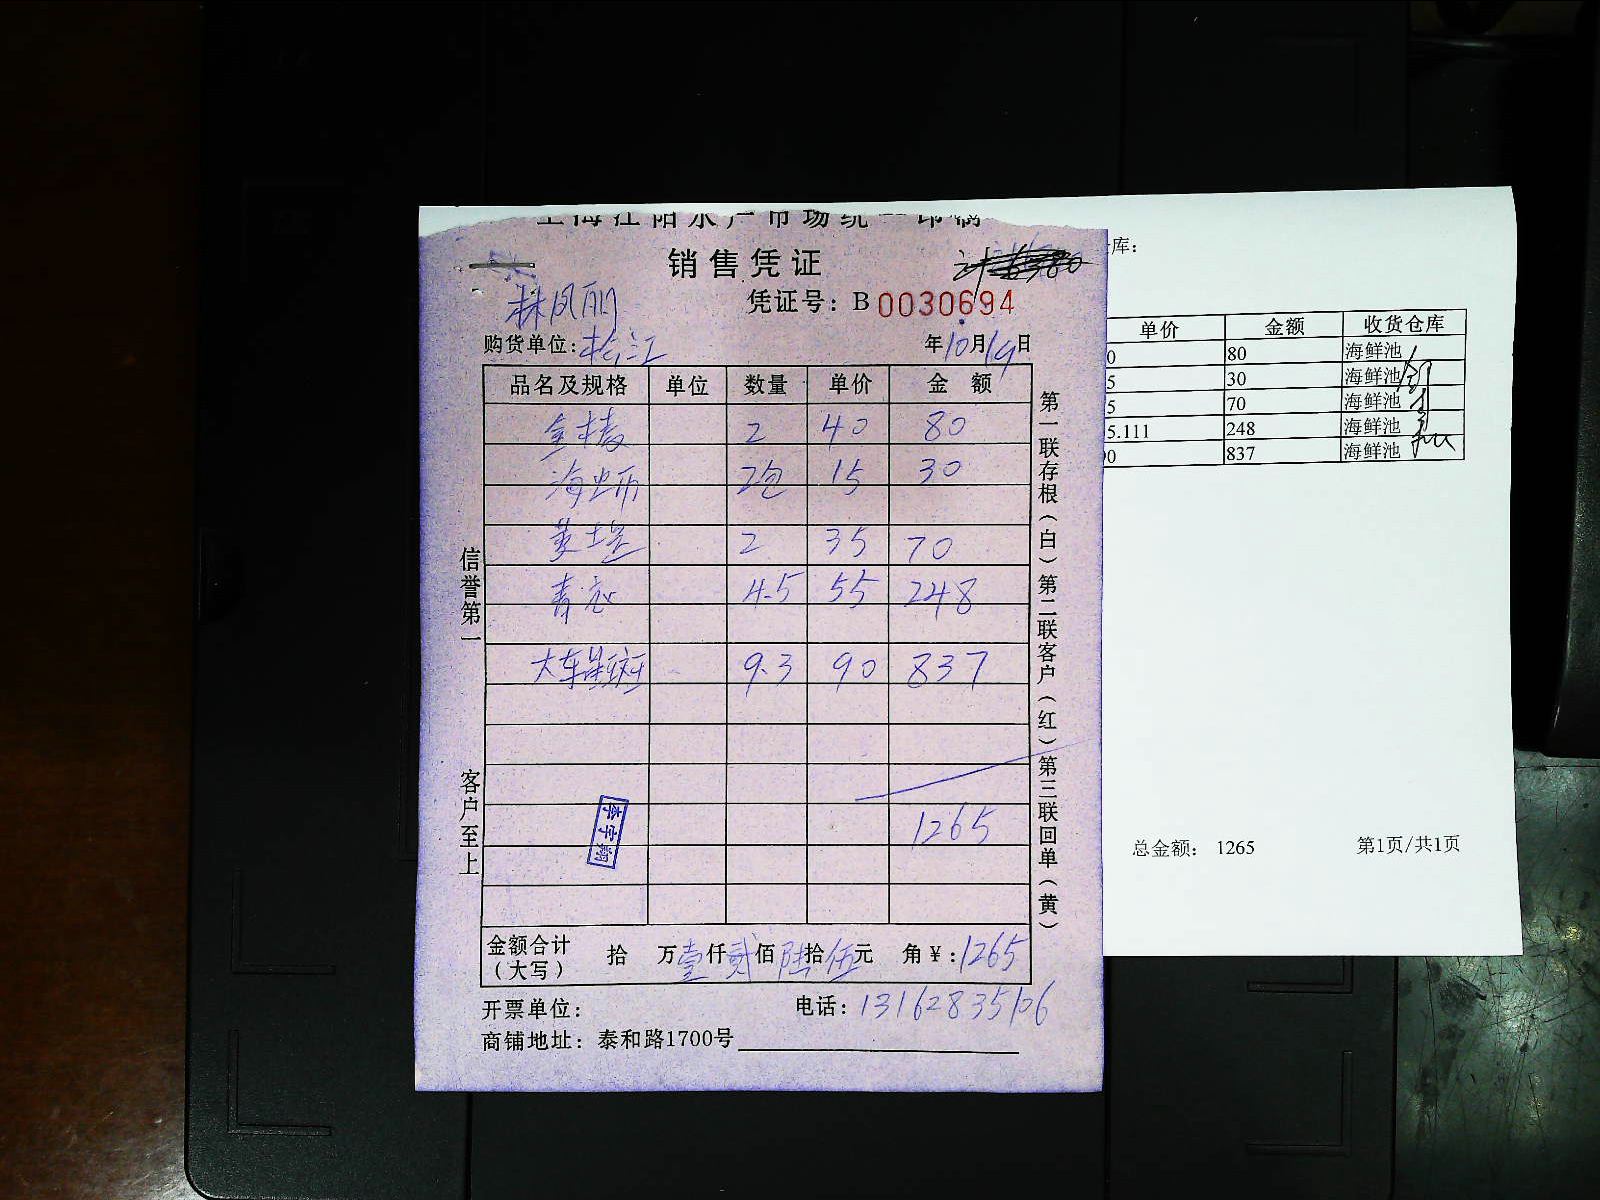 上海江阳水产市场统一印制
销售凭证
林凤丽
凭证号：B 0030694
购货单位：松江
年10月19日
品名及规格 单位 数量 单价 金额
2 40 80
2包 15 30
2 35 70
青衣 4.5 55 248
9.3 90 837
1265
李宇翔
金额合计（大写） 拾 万壹仟贰佰陆拾伍元 角¥：1265
开票单位：
电话：13162835106
商铺地址：泰和路1700号
信誉第一
客户至上
第一联存根（白）第二联客户（红）第三联回单（黄）
库：
单价 金额 收货仓库
0 80 海鲜池
5 30 海鲜池
5 70 海鲜池
5.111 248 海鲜池
00 837 海鲜池
总金额： 1265
第1页/共1页